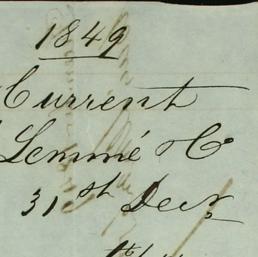 1849
Current
Lemmé & Co
31st Decr